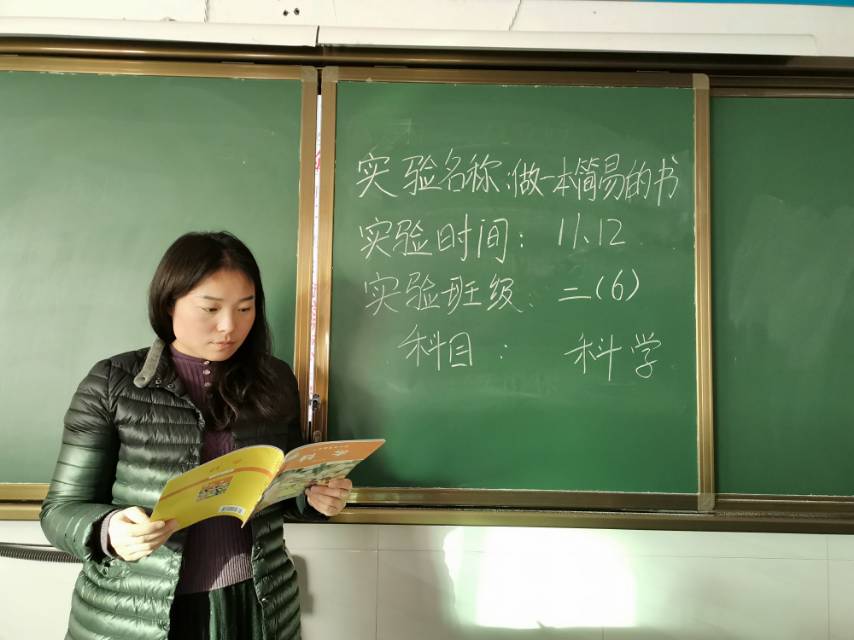 实验名称:做一本简易的书
实验时间: 11、12
实验班级: 二(6)
科目: 科学